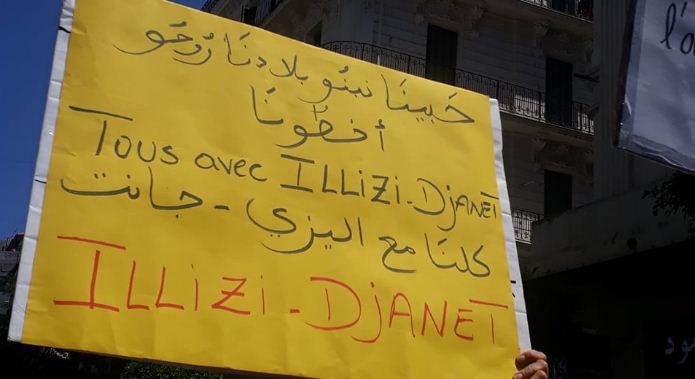 حَبينَا نبنُو بلادنَا رُوحُو
أخطونَا
Tous avec ILLiZi-DjANET
كلنَا مع اليزي - جانت
ILLiZi-DjANET
l'o
ود